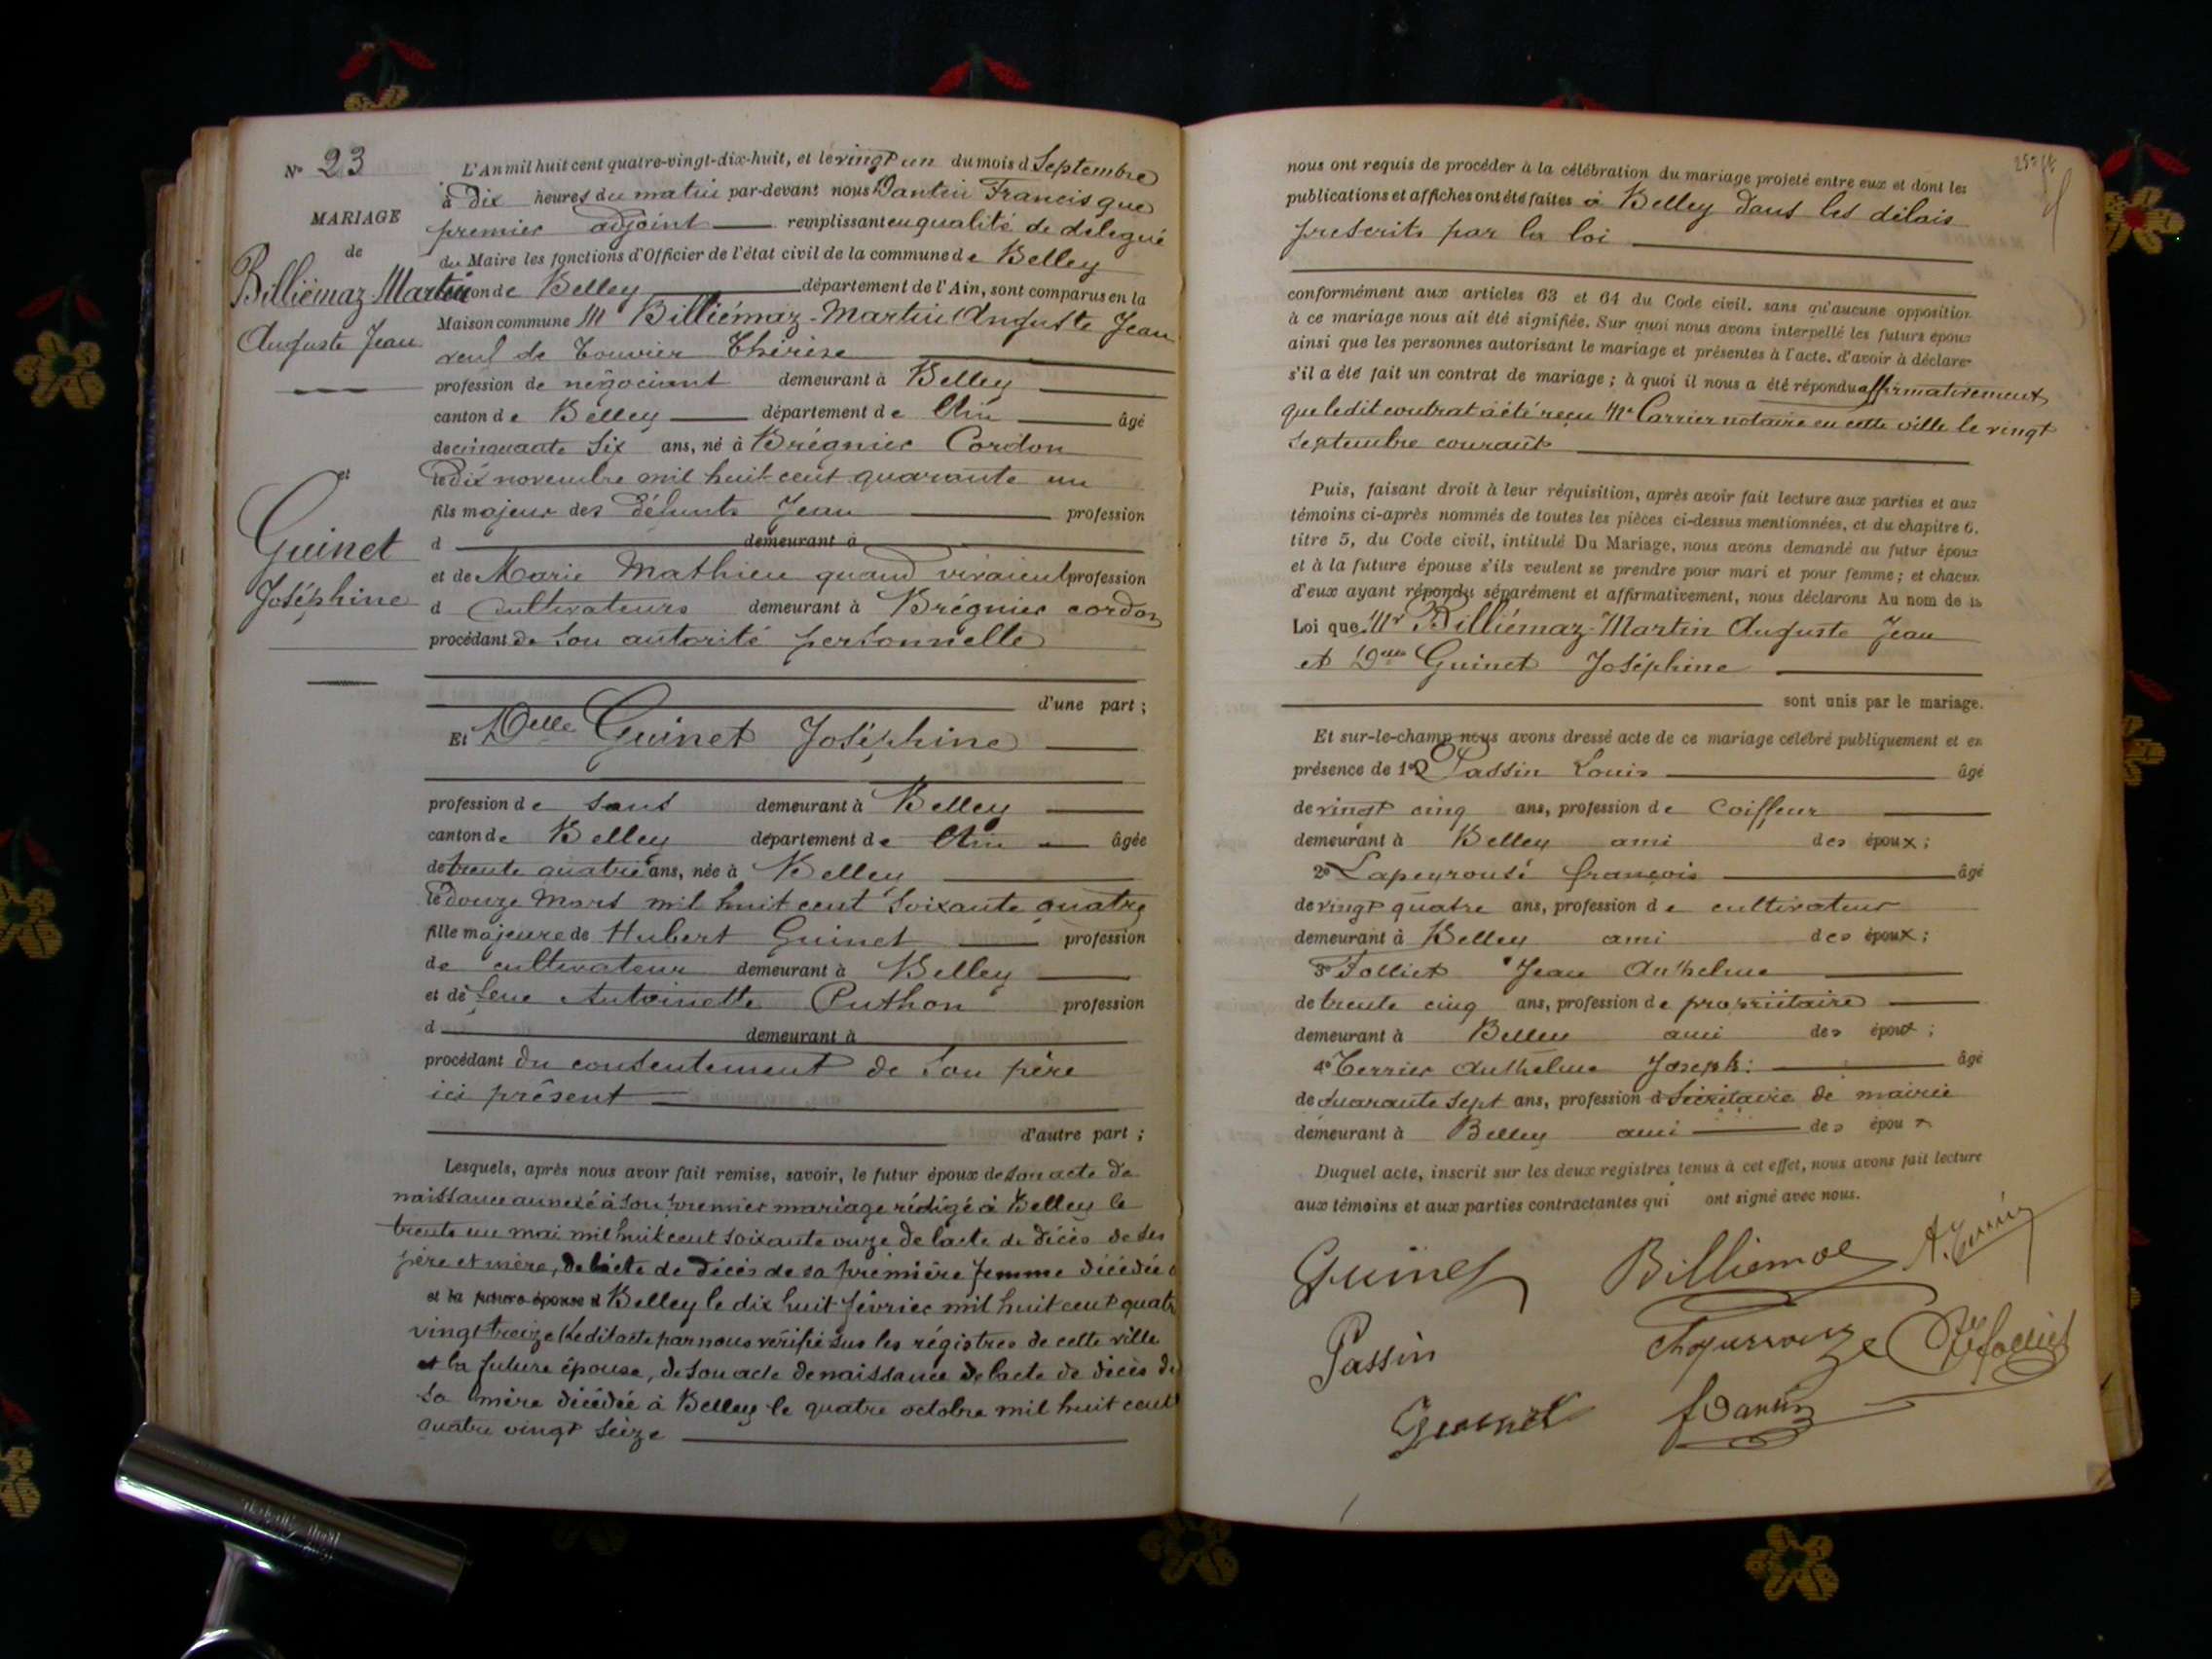 N° 23
MARIAGE
de
Billiémaz-Martin
Auguste Jean
et
Guinet
Joséphine
L'An mil huit cent quatre-vingt-dix-huit, et le vingt un du mois d Septembre
à Dix heures du matin par-devant nous Dantin Francisque
premier adjoint remplissant en qualité de délégué
du Maire les fonctions d'Officier de l'état civil de la commune de Belley
de Belley département de l'Ain, sont comparus en la
Maison commune Mr Billiémaz-Martin Auguste Jean
veuf de Touvier Thérèse
profession de négociant demeurant à Belley
canton de Belley département de Ain âgé
de cinquante six ans, né à Brégnier Cordon
le dix novembre mil huit cent quarante un
fils majeur des défunts Jean profession
d demeurant à
et de Marie Mathieu quand vivaient profession
d cultivateurs demeurant à Brégnier cordon
procédant de son autorité personnelle
d'une part ;
Et Delle Guinet Joséphine
profession de sans demeurant à Belley
canton de Belley département de Ain âgée
de trente quatre ans, née à Belley
le douze Mars mil huit cent soixante quatre
fille majeure de Hubert Guinet profession
de cultivateur demeurant à Belley
et de feue Antoinette Puthon profession
d demeurant à
procédant du consentement de son père
ici présent
d'autre part ;
Lesquels, après nous avoir fait remise, savoir, le futur époux de son acte de
naissance annexé à son premier mariage rédigé à Belley le
trente un mai mil huit cent soixante onze de l'acte de décès de ses
père et mère, de l'acte de décès de sa première femme décédée à
et la future épouse d Belley le dix huit février mil huit cent quatre
vingt treize ledit acte par nous vérifié sur les régistres de cette ville
et la future épouse, de son acte de naissance de l'acte de décès de
sa mère décédée à Belley le quatre octobre mil huit cent
quatre vingt seize
nous ont requis de procéder à la célébration du mariage projeté entre eux et dont les
publications et affiches ont été faites à Belley dans les délais
prescrits par la loi
conformément aux articles 63 et 64 du Code civil. sans qu'aucune opposition
à ce mariage nous ait été signifiée. Sur quoi nous avons interpellé les futurs époux
ainsi que les personnes autorisant le mariage et présentes à l'acte. d'avoir à déclarer
s'il a été fait un contrat de mariage ; à quoi il nous a été répondu affirmativement
que ledit contrat a été reçu Me Carrier notaire en cette ville le vingt
septembre courant
Puis, faisant droit à leur réquisition, après avoir fait lecture aux parties et aux
témoins ci-après nommés de toutes les pièces ci-dessus mentionnées, et du chapitre 6.
titre 5, du Code civil, intitulé Du Mariage, nous avons demandé au futur époux
et à la future épouse s'ils veulent se prendre pour mari et pour femme ; et chacun
d'eux ayant répondu séparément et affirmativement, nous déclarons Au nom de la
Loi que Mr Billiémaz-Martin Auguste Jean
et Delle Guinet Joséphine
sont unis par le mariage.
Et sur-le-champ nous avons dressé acte de ce mariage célébré publiquement et en
présence de 1° Passin Louis âgé
de vingt cinq ans, profession de Coiffeur
demeurant à Belley ami des époux ;
2° Lapeyrousé françois âgé
de vingt quatre ans, profession de cultivateur
demeurant à Belley ami des époux ;
3° Folliet Jean Anthelme
de trente cinq ans, profession de propriétaire
demeurant à Belley ami des époux ;
4° Terrier Anthelme Joseph âgé
de quarante sept ans, profession d Sécrétaire de mairie
demeurant à Belley ami des époux
Duquel acte, inscrit sur les deux registres tenus à cet effet, nous avons fait lecture
aux témoins et aux parties contractantes qui ont signé avec nous.
Guinet
Passin
fDantin